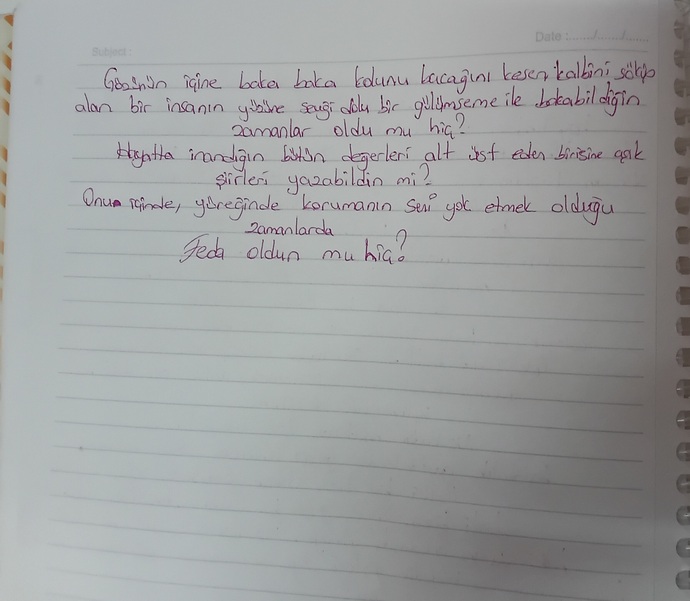 Date :....../....../......
Subject :
Gözünün içine baka baka kolunu bacağını kesen kalbini söküp
alan bir insanın yüzüne sevgi dolu bir gülümseme ile bakabildiğin
zamanlar oldu mu hiç?
Hayatta inandığın bütün değerleri alt üst eden birisine aşk
şiirleri yazabildin mi?
Onun içinde, yüreğinde korumanın seni yok etmek olduğu
zamanlarda
Feda oldun mu hiç?